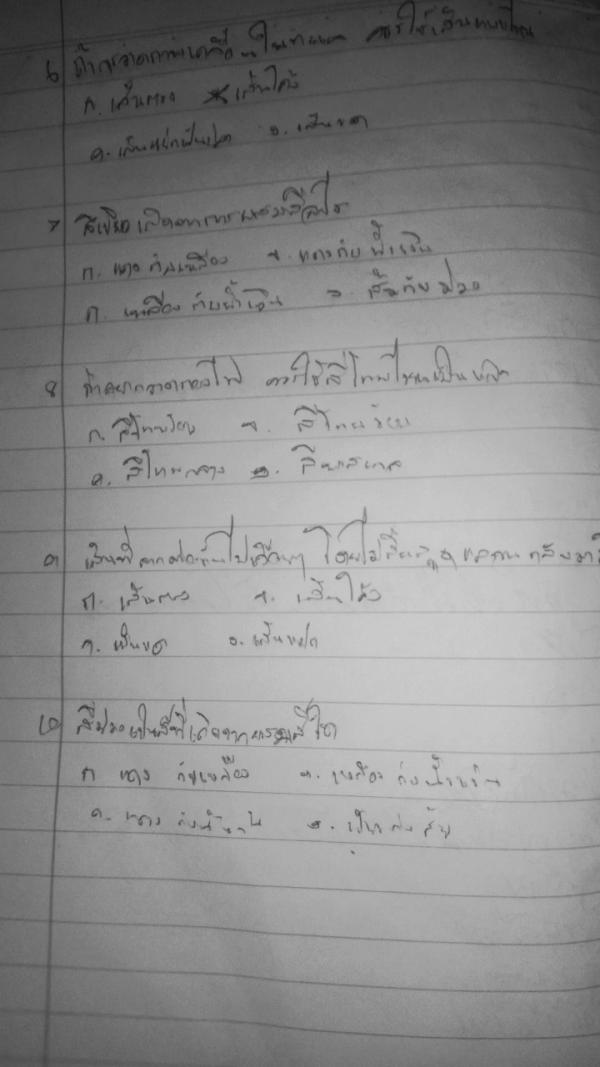 6 ถ้า ควรใช้เส้นแบบไหน
ก. เส้นตรง ข. เส้นโค้ง
ค. เส้นหยักฟันปลา ง. เส้นขด
7 สีเขียวเกิดจากการผสมสีอะไร
ก. แดงกับเหลือง ข. แดงกับน้ำเงิน
ค. เหลืองกับน้ำเงิน ง. ส้มกับม่วง
8 ถ้าอยากวาดกองไฟ ควรใช้สีโทนไหนเป็นหลัก
ก. สีโทนร้อน ข. สีโทนเย็น
ค. สีโทนกลาง ง.
9 เส้นที่ลากต่อกันไปเรื่อยๆ โดยไม่สิ้นสุด
ก. เส้นตรง ข. เส้นโค้ง
ค. เส้นขด ง. เส้นหยัก
10 สีม่วงเป็นสีที่เกิดจากการผสมสีใด
ก แดงกับเหลือง ข. เหลืองกับน้ำเงิน
ค. แดงกับน้ำเงิน ง. เขียวกับส้ม